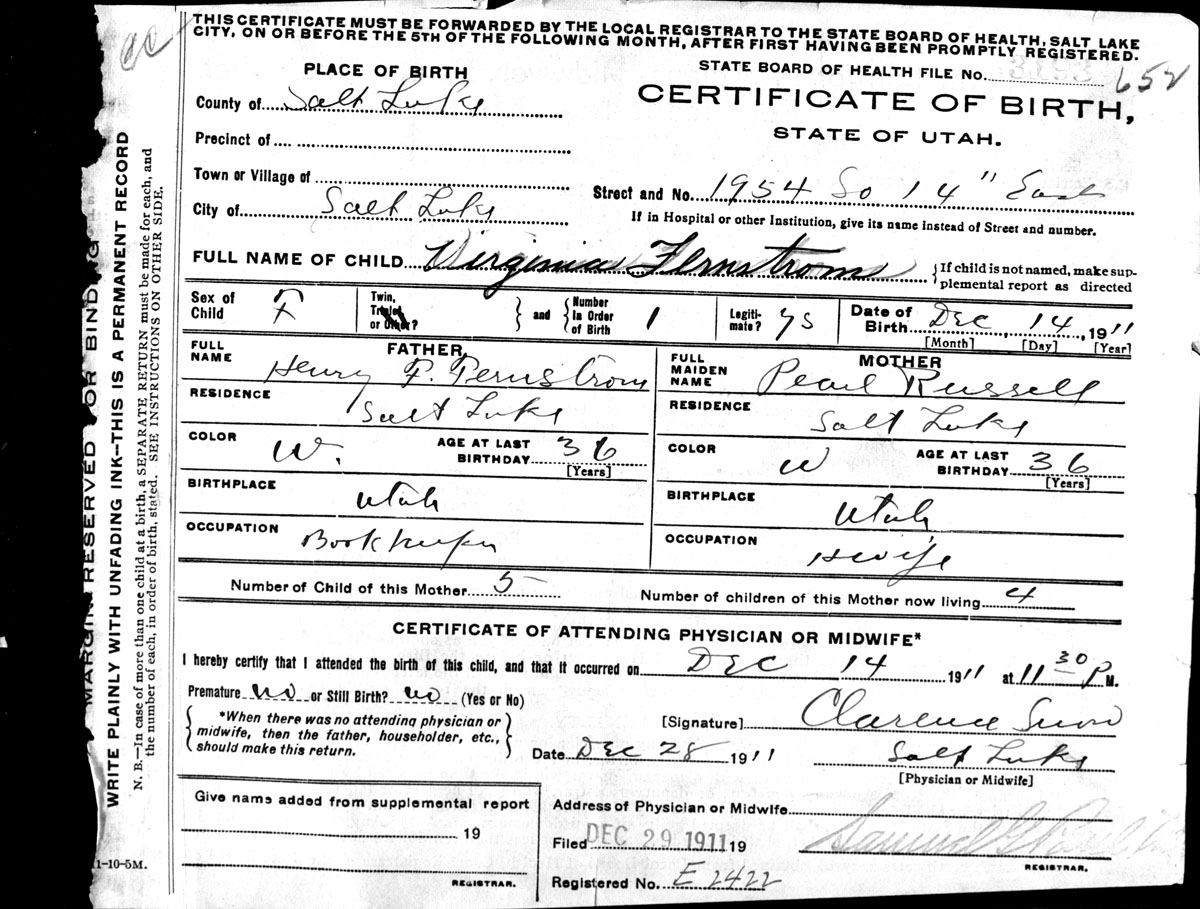 THIS CERTIFICATE MUST BE FORWARDED BY THE LOCAL REGISTRAR TO THE STATE BOARD OF HEALTH, SALT LAKE
CITY, ON OR BEFORE THE 5TH OF THE FOLLOWING MONTH, AFTER FIRST HAVING BEEN PROMPTLY REGISTERED.
PLACE OF BIRTH
STATE BOARD OF HEALTH FILE No. 652
County of Salt Lake
CERTIFICATE OF BIRTH,
STATE OF UTAH.
Precinct of
Town or Village of
Street and No. 1954 So 14" East
City of Salt Lake
If in Hospital or other Institution, give its name instead of Street and number.
FULL NAME OF CHILD Virginia Fernstrom
{If child is not named, make sup-
plemental report as directed
Sex of Child F
Twin, Triplet, or Other? } and {Number in Order of Birth 1
Legiti-mate? ys
Date of Birth Dec 14, 1911
[Month] [Day] [Year]
FATHER
FULL NAME Henry F. Fernstrom
RESIDENCE Salt Lake
COLOR W.
AGE AT LAST BIRTHDAY 36
[Years]
BIRTHPLACE Utah
OCCUPATION Bookkeeper
MOTHER
FULL MAIDEN NAME Pearl Russell
RESIDENCE Salt Lake
COLOR W
AGE AT LAST BIRTHDAY 36
[Years]
BIRTHPLACE Utah
OCCUPATION Hwife
Number of Child of this Mother 5
Number of children of this Mother now living 4
CERTIFICATE OF ATTENDING PHYSICIAN OR MIDWIFE*
I hereby certify that I attended the birth of this child, and that it occurred on Dec 14 1911 at 11 30 P M.
Premature no or Still Birth? no (Yes or No)
{*When there was no attending physician or
midwife, then the father, householder, etc.,
should make this return.}
[Signature] Clarence Snow
Date Dec 28 1911
Salt Lake
[Physician or Midwife]
Give name added from supplemental report
19
REGISTRAR.
Address of Physician or Midwife
Filed DEC 29 1911 19
Samuel G.
REGISTRAR.
Registered No. E 2422
MARGIN RESERVED FOR BINDING
WRITE PLAINLY WITH UNFADING INK—THIS IS A PERMANENT RECORD
N. B.—In case of more than one child at a birth, a SEPARATE RETURN must be made for each, and
the number of each, in order of birth, stated. SEE INSTRUCTIONS ON OTHER SIDE.
1-10-5M.